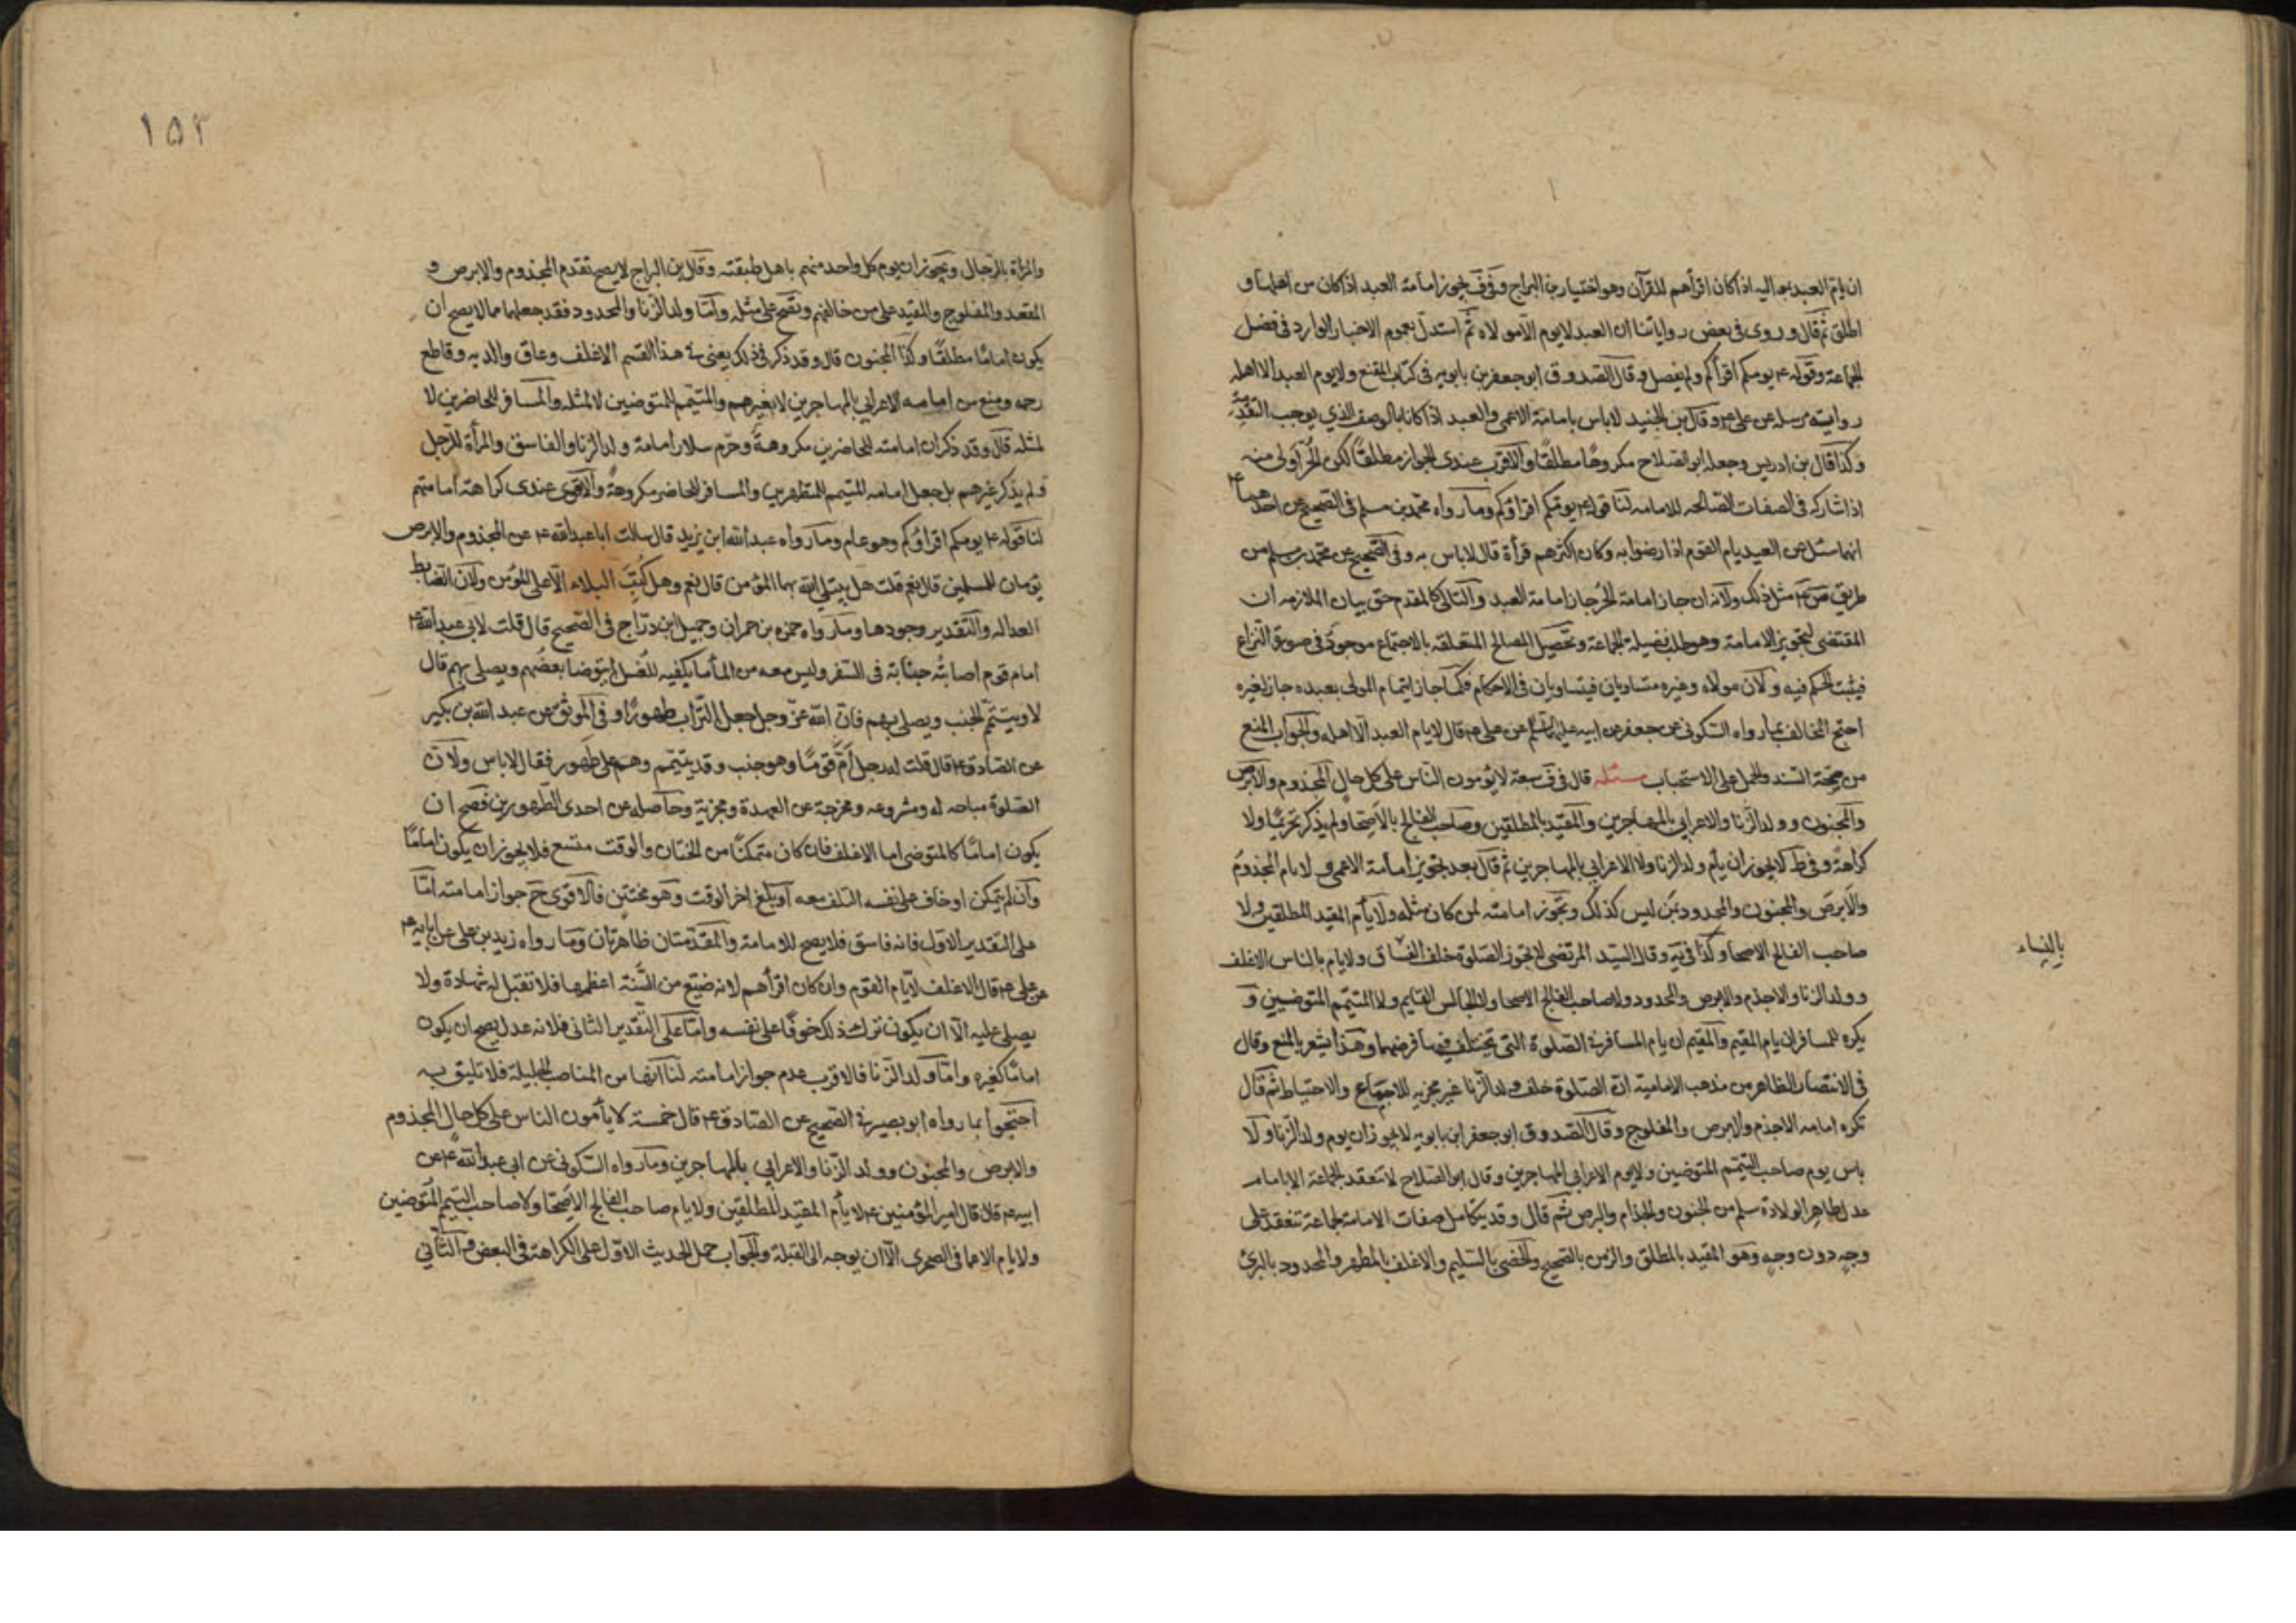 ان يام العبد مواليه اذا كان اقرأهم للقرآن وهو اختيار بن البراج وفي ف يجوز امامة العبد اذا كان من اهلها و
اطلق ثم قال وروى في بعض رواياتنا ان العبد لايوم الا مولاه ثم استدل بعموم الاخبار الواردة في فضل
الجماعة وقوله ع يومكم اقرأكم ولم يفصل وقال الصدوق ابو جعفر بن بابويه في كتاب المقنع ولايوم العبد الا اهله
رواية مرسلة عن على ع وقال بن الجنيد لاباس بامامة الاعمى والعبد اذا كانا بالوصف الذي يوجب التقدمة
وكذا قال بن ادريس وجعله ابو الصلاح مكروهًا مطلقًا والاقرب عندى الجواز مطلقًا لكن الحر اولى منه
اذا شاركه في الصفات الصالحه للامامه لنا قوله ع يومكم اقرؤكم وما رواه محمد بن مسلم في الصحيح عن احدهما ع
انه سئل عن العبد يام القوم اذا رضوا به وكان اكثرهم قرأة قال لاباس به وفي الصحيح عن محمد بن مسلم من
طريق مثل ذلك ولانه ان جاز امامة الحر جاز امامة العبد والتالى كالمقدم حق بيان الملازمه ان
المقتضى لتجويز الامامة وهو طلب فضيلة الجماعة وتحصيل المصالح المتعلقه بالاجتماع موجود في صورة النزاع
فيثبت الحكم فيه ولان مولاه وغيره متساويان فيتساويان في الاحكام فكما جاز ايتمام المولى بعبده جاز لغيره
احتج المخالف بما رواه السكونى عن جعفر عن ابيه عليهما السلم عن على ع قال لايام العبد الا اهله والجواب المنع
من صحة السند والحمل على الاستحباب مسئله قال في ف سبعة لايؤمون الناس على كل حال المجذوم والابرص
والمجنون وولد الزنا والاعرابي بالمهاجرين والمقيد بالمطلقين وصاحب الفالج بالاصحا ولم يذكر تحريمًا ولا
كراهة وفي ط لايجوز ان يام ولد الزنا ولا الاعرابي بالمهاجرين ثم قال بعد تجويز امامة الاعمى ولايام المجذوم
والابرص والمجنون والمحدود من ليس كذلك ويجوز امامته لمن كان مثله ولايأم المقيد المطلقين ولا
صاحب الفالج الاصحا وكذا في يه وقال السيد المرتضى لايجوز الصلوة خلف الفساق ولايام بالناس الاغلف
وولد الزنا والاجذم والابرص والمحدود ولاصاحب الفالج الاصحا ولا الجالس القايم ولا المتيمم المتوضيين و
يكره للمسافر ان يام المقيم والمقيم ان يام المسافر في الصلوة التى يختلف فيها فرضهما وهذا يشعر بالمنع وقال
في الانتصار الظاهر من مذهب الامامية ان الصلوة خلف ولد الزنا غير مجزيه للاجماع والاحتياط ثم قال
تكره امامه الاجذم والابرص والمفلوج وقال الصدوق ابو جعفر ابن بابويه لايجوز ان يوم ولد الزنا ولا
باس يوم صاحب التيمم المتوضيين ولايوم الاعرابي المهاجرين وقال ابو الصلاح لاتنعقد الجماعة الا بامام
عدل طاهر الولادة سليم من الجنون والجذام والبرص ثم قال وقد يتكامل صفات الامامة لجماعة تنعقد على
وجه دون وجه وهو المقيد بالمطلق والزمن بالصحيح والخصى بالسليم والاغلف بالمطهر والمحدود بالبرئ
بالنساء
١٥٣
والمرأة بالرجال ويجوز ان يوم كل واحد منهم باهل طبقته وقال بن البراج لايصح تقدم المجذوم والابرص و
المقعد والمفلوج والمقيد على من خالفهم ويصح على مثله واما ولد الزنا والمحدود فقد جعلهما مما لايصح ان
يكون امامًا مطلقًا وكذا المجنون قال وقد ذكر في ذلك يعنى في هذا القسم الاغلف وعاق والديه وقاطع
رحمه ومنع من امامه الاعرابي بالمهاجرين لا بغيرهم والمتيمم للمتوضيين لالمثله والمسافر للحاضرين لا
لمثله قال وقد ذكر ان امامته للحاضرين مكروهة وحرم سلار امامة ولد الزنا والفاسق والمرأة للرجل
ولم يذكر غيرهم بل جعل امامه المتيمم للمتطهرين والمسافر للحاضر مكروهة والاقوى عندى كراهة امامتهم
لنا قوله ع يومكم اقرؤكم وهو عام وما رواه عبد الله ابن يزيد قال سالت ابا عبد الله ع عن المجذوم والابرص
يؤمان المسلمين قال نعم قلت هل يبتلى الله بهما المؤمن قال نعم وهل كتب البلاء الا على المؤمن ولان الضابط
العداله والتقدير وجودها وما رواه حمزه بن حمران وجميل ابن دراج في الصحيح قال قلت لابى عبد الله ع
امام قوم اصابته جنابة في السفر وليس معه من الماء ما يكفيه للغسل ايتوضا بعضهم ويصلى بهم قال
لا ويتيمم الجنب ويصلى بهم فان الله عز وجل جعل التراب طهورًا وفي الموثق عن عبد الله بن بكير
عن الصادق ع قال قلت له رجل أم قومًا وهو جنب وقد يتيمم وهم على طهور فقال لاباس ولان
الصلوة مباحه له ومشروعه ومخرجة عن العهدة ومجزية وحاصله عن احدى الطهورين فصح ان
يكون امامًا كالمتوضى اما الاغلف فان كان متمكنًا من الختان والوقت متسع فلا يجوز ان يكون امامًا
وان لم يتمكن او خاف على نفسه التلف معه او بلغ اخر الوقت وهو مختتن فالاقوى ح جواز امامته اما
على التقدير الاول فانه فاسق فلايصح للامامة والمقدمتان ظاهرتان وما رواه زيد بن على عن ابايه ع
عن على ع قال الاغلف لايام القوم وان كان اقرأهم لانه ضيع من السنة اعظمها فلا تقبل له شهادة ولا
يصلى عليه الا ان يكون ترك ذلك خوفًا على نفسه واما على التقدير الثانى فلانه عدل يصح ان يكون
امامًا كغيره واما ولد الزنا فالاقرب عدم جواز امامته لنا انها من المناصب الجليلة فلا تليق به
احتجوا بما رواه ابو بصير في الصحيح عن الصادق ع قال خمسة لايأمون الناس على كل حال المجذوم
والابرص والمجنون وولد الزنا والاعرابي بالمهاجرين وما رواه السكونى عن ابى عبد الله ع عن
ابيه ع قال قال امير المؤمنين ع لايأم المقيد المطلقين ولايام صاحب الفالج الاصحا ولا صاحب التيمم المتوضين
ولايام الاعما في الصحرى الا ان يوجه الى القبلة والجواب حمل الحديث الاول على الكراهة في البعض والثانى